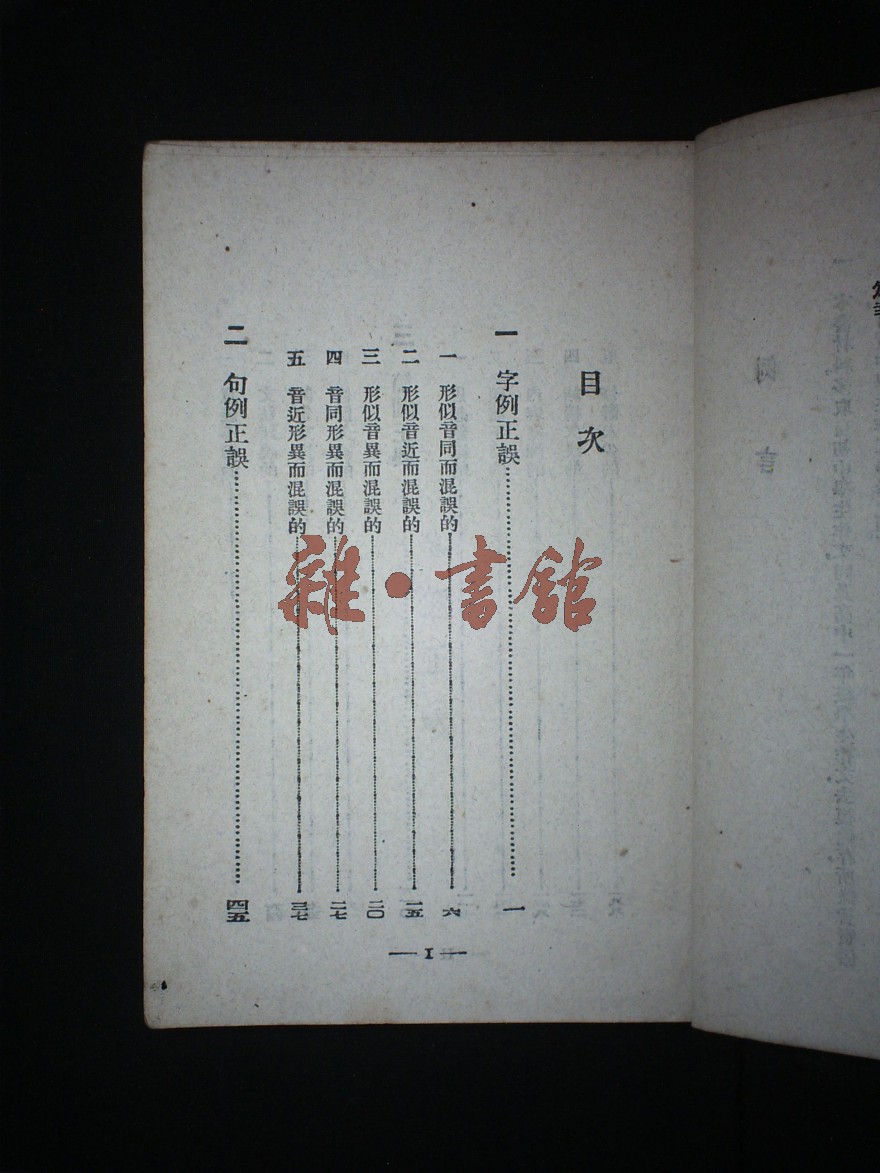 目次
一 字例正誤……一
一 形似音同而混誤的……六
二 形似音近而混誤的……一五
三 形似音異而混誤的……二〇
四 音同形異而混誤的……二七
五 音近形異而混誤的……三七
二 句例正誤……四五
— I —
雜·書館